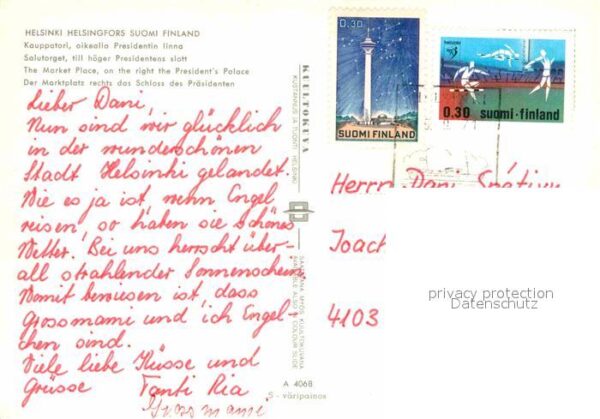 HELSINKI HELSINGFORS SUOMI FINLAND
Kauppatori, oikealla Presidentin linna
Salutorget, till höger Presidentens slott
The Market Place, on the right the President's Palace
Der Marktplatz rechts das Schloss des Präsidenten
Lieber Dani,
Nun sind wir glücklich
in der wunderschönen
Stadt Helsinki gelandet.
Wie es ja ist, wenn Engel
reisen, so haben sie schönes
Wetter. Bei uns herrscht über-
all strahlender Sonnenschein
Womit bewiesen ist, dass
Grossmami und ich Engel-
chen sind.
Viele liebe Küsse und
Grüsse Tanti Ria
Grossmami
KUULTOKUVA
KUSTANNUS JA TUONTI HELSINKI
AVAILABLE ALSO IN COLOUR SLIDE
A 4068
S - väripainos
0.30
SUOMI FINLAND
0.30 suomi-finland
Herrn Dani
Joach
4103
privacy protection
Datenschutz